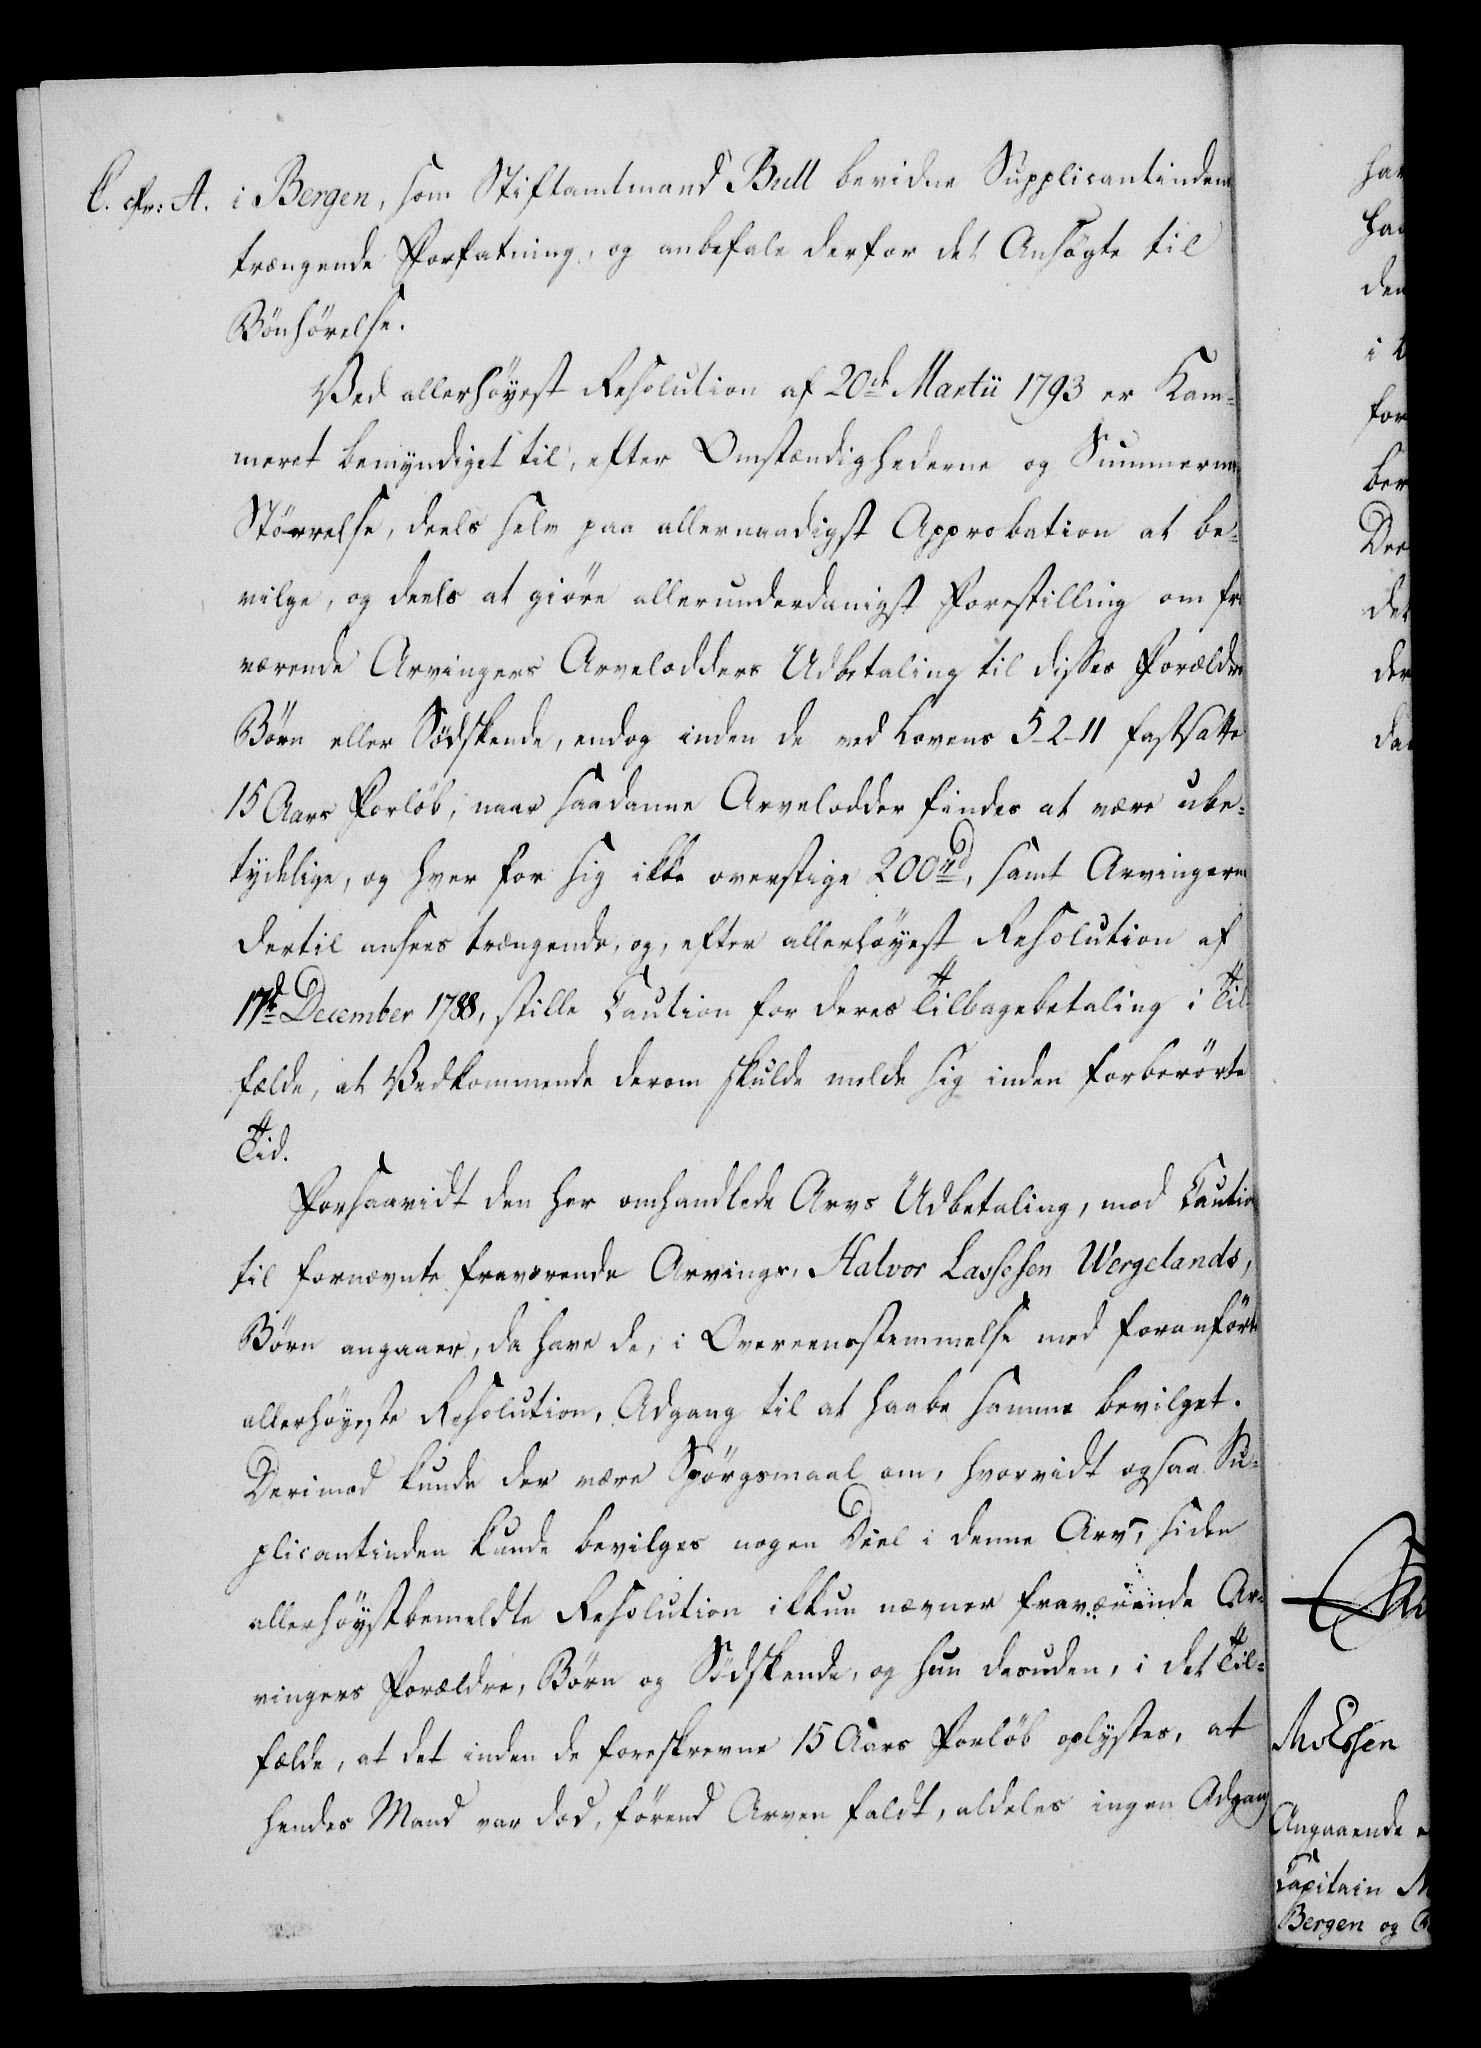 C. cfr: A. i Bergen, som Stiftamtmand Bull bevidne Supplicantindens
trængende Forfatning, og anbefale derfor det Ansögte til
Bönhörelse.
Ved allerhöyest Resolution af 20de Martii 1793 er Kam-
meret bemyndiget til, efter Omstændighederne og Summernes
Störrelse, deels selv paa allernaadigst Approbation at be-
vilge, og deels at giöre allerunderdanigst Forestilling om fra
værende Arvingers Arvelodders Udbetaling til disses Forældre
Börn eller Södskende, endog inden de ved Lovens 5-2-11 fastsatte
15 Aars Forlöb, naar saadanne Arvelodder findes at være ube-
tydelige, og hver for sig ikke overstige 200rd, samt Arvingerne
dertil ansees trængende, og, efter allerhöyest Resolution af
17de December 1788, stille Caution for deres Tilbagebetaling i Til-
fælde, at Vedkommende derom skulde melde sig inden forberörte
Tid.
Forsaavidt den her omhandlede Arvs Udbetaling, mod Caution
til fornævnte fraværende Arvings, Halvor Lassesen Wergelands,
Börn angaaer, da have de, i Overeensstemmelse med foranförte
allerhöyeste Resolution, Adgang til at haabe samme bevilget.
Derimod kunde der være Spörgsmaal om, hvorvidt ogsaa Su-
plicantinden kunde bevilges nogen Deel i denne Arv, siden
allerhöystbemeldte Resolution ikkun nævner fraværende Ar-
vingers Forældre, Börn og Södskende, og hun desuden, i det Til-
fælde, at det inden de foreskrevne 15 Aars Forlöb oplystes, at
hendes Mand var död, förend Arven faldt, aldeles ingen Adgang
den
i
for
ber
det
der
Angaaende
Capitain
Bergen og